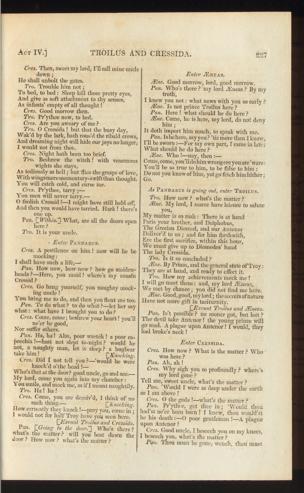 ACT IV.] TROILUS AND CRESSIDA.
Cres. Then, sweet my lord, I'll call mine uncle
down;
He shall unbolt the gates.
Tro. Trouble him not;
To bed, to bed: Sleep kill those pretty eyes,
And give as soft attachment to thy senses,
As infants' empty of all thought!
Cres. Good morrow then.
Tro. Pr'ythee now, to bed.
Cres. Are you aweary of me?
Tro. O Cressida! but that the busy day,
Wak'd by the lark, hath rous'd the ribald crows,
And dreaming night will hide our joys no longer,
I would not from thee.
Cres. Night hath been too brief.
Tro. Beshrew the witch! with venomous
wights she stays,
As tediously as hell; but flies the grasps of love,
With wings more momentary-swift than thought.
You will catch cold, and curse me.
Cres. Pr'ythee, tarry;—
You men will never tarry.—
O foolish Cressid!—I might have still held off,
And then you would have tarried. Hark! there's
one up.
Pan. [Within.] What, are all the doors open
here?
Tro. It is your uncle.
Enter PANDARUS.
Cres. A pestilence on him! now will he be
mocking:
I shall have such a life,—
Pan. How now, how now? how go maiden-
heads?—Here, you maid! where's my cousin
Cressid?
Cres. Go hang yourself, you naughty mock-
ing uncle!
You bring me to do, and then you flout me too.
Pan. To do what? to do what?—let her say
what: what have I brought you to do?
Cres. Come, come; beshrew your heart! you'll
ne'er be good,
Nor suffer others.
Pan. Ha, ha! Alas, poor wretch! a poor ca-
pocchia!—hast not slept to-night? would he
not, a naughty man, let it sleep? a bugbear
take him! [Knocking.
Cres. Did I not tell you?—'would he were
knock'd o'the head!—
Who's that at the door? good uncle, go and see.—
My lord, come you again into my chamber:
You smile, and mock me, as if I meant naughtily.
Tro. Ha! ha!
Cres. Come, you are deceiv'd, I think of no
such thing.— [Knocking.
How earnestly they knock!—pray you, come in;
I would not for half Troy have you seen here.
[Exeunt Troilus and Cressida.
Pan. [Going to the door.] Who's there?
what's the matter? will you beat down the
door? How now? what's the matter?
Enter ÆNEAS.
Æne. Good morrow, lord, good morrow.
Pan. Who's there? my lord Æneas? By my
troth,
I knew you not: what news with you so early?
Æne. Is not prince Troilus here?
Pan. Here! what should he do here?
Æne. Come, he is here, my lord, do not deny
him;
It doth import him much, to speak with me.
Pan. Is he here, say you? 'tis more than I know,
I'll be sworn:—For my own part, I came in late:
What should he do here?
Æne. Who!—nay, then:—
Come, come, you'll do him wrong ere you are 'ware:
You'll be so true to him, to be false to him:
Do not you know of him, yet go fetch him hither;
Go.
As PANDARUS is going out, enter TROILUS.
Tro. How now? what's the matter?
Æne. My lord, I scarce have leisure to salute
you,
My matter is so rash: There is at hand
Paris your brother, and Deiphobus,
The Grecian Diomed, and our Antenor
Deliver'd to us; and for him forthwith,
Ere the first sacrifice, within this hour,
We must give up to Diomedes' hand
The lady Cressida.
Tro. Is it so concluded?
Æne. By Priam, and the general state of Troy:
They are at hand, and ready to effect it.
Tro. How my achievements mock me!
I will go meet them: and, my lord Æneas,
We met by chance; you did not find me here.
Æne. Good, good, my lord; the secrets of nature
Have not more gift in taciturnity.
[Exeunt Troilus and Æneas.
Pan. Is't possible? no sooner got, but lost?
The devil take Antenor! the young prince will
go mad. A plague upon Antenor! I would, they
had broke's neck!
Enter CRESSIDA.
Cres. How now? What is the matter? Who
was here?
Pan. Ah, ah!
Cres. Why sigh you so profoundly? where's
my lord gone?
Tell me, sweet uncle, what's the matter?
Pan. 'Would I were as deep under the earth
as I am above!
Cres. O the gods!—what's the matter?
Pan. Pr'ythee, get thee in; 'Would thou
had'st ne'er been born! I knew, thou would'st
be his death:—O poor gentleman!—A plague
upon Antenor!
Cres. Good uncle, I beseech you on my knees,
I beseech you, what's the matter?
Pan. Thou must be gone, wench, thou must